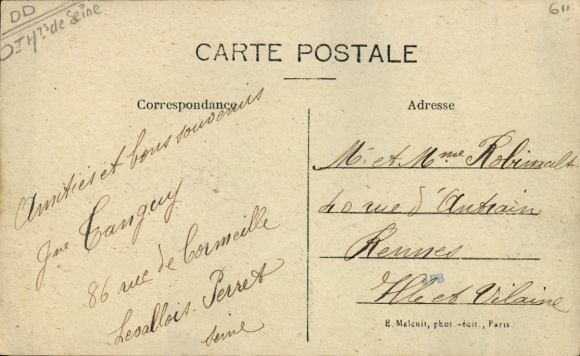 DD
Dt Hts de Seine
611
CARTE POSTALE
Correspondance
Adresse
Amitiés et bons souvenirs
Jne Tanguy
86 rue de Cormeille
Levallois-Perret
Seine
Mr et Mme Robinault
40 rue d'Antrain
Rennes
Ille et Vilaine
E. Malcuit, phot.-édit., Paris